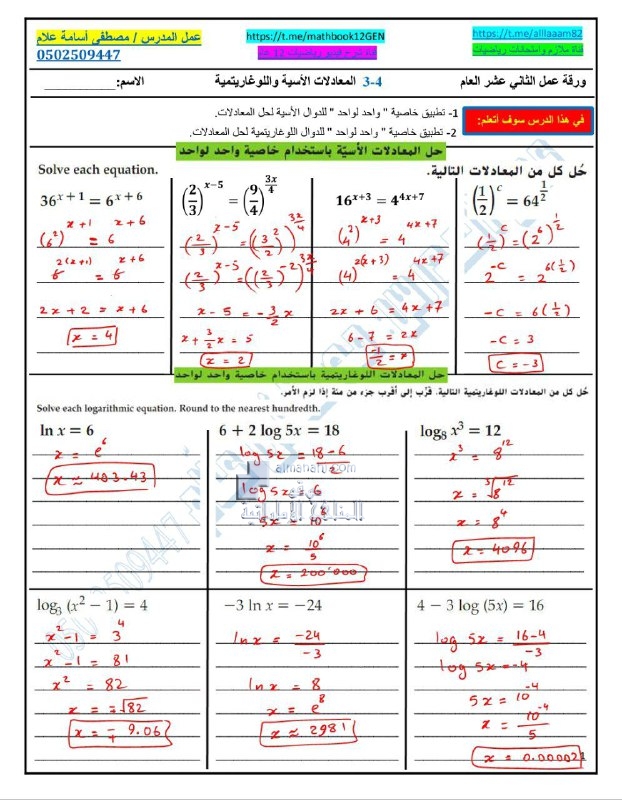 عمل المدرس / مصطفى أسامة علام
0502509447
https://t.me/mathbook12GEN
قناة شرح فيديو رياضيات 12 عام
https://t.me/alllaaam82
قناة ملازم وامتحانات رياضيات
ورقة عمل الثاني عشر العام
3-4 المعادلات الأسية واللوغاريتمية
الاسم:____________
في هذا الدرس سوف أتعلم:
1- تطبيق خاصية " واحد لواحد " للدوال الأسية لحل المعادلات.
2- تطبيق خاصية " واحد لواحد " للدوال اللوغاريتمية لحل المعادلات.
حل المعادلات الأسيّة باستخدام خاصية واحد لواحد
Solve each equation.
حُل كل من المعادلات التالية.
36^(x + 1) = 6^(x + 6)
(6²)^(x+1) = 6^(x+6)
6^(2(x+1)) = 6^(x+6)
2x + 2 = x + 6
x = 4
(2/3)^(x−5) = (9/4)^(3x/4)
(2/3)^(x−5) = ((3/2)²)^(3x/4)
(2/3)^(x−5) = ((2/3)^−2)^(3x/4)
x − 5 = −3/2 x
x + 3/2 x = 5
x = 2
16^(x+3) = 4^(4x+7)
(4²)^(x+3) = 4^(4x+7)
(4)^(2(x+3)) = 4^(4x+7)
2x + 6 = 4x + 7
6 − 7 = 2x
−1/2 = x
(1/2)^c = 64^(1/2)
(1/2)^c = (2⁶)^(1/2)
2^−c = 2^(6(1/2))
−c = 6(1/2)
−c = 3
c = −3
حل المعادلات اللوغاريتمية باستخدام خاصية واحد لواحد
حُل كل من المعادلات اللوغاريتمية التالية. قرّب إلى أقرب جزء من مئة إذا لزم الأمر.
Solve each logarithmic equation. Round to the nearest hundredth.
ln x = 6
x = e⁶
x ≈ 403.43
6 + 2 log 5x = 18
log 5x = (18−6)/2
log 5x = 6
5x = 10⁶
x = 10⁶/5
x = 200'000
log₈ x³ = 12
x³ = 8¹²
x = ³√8¹²
x = 8⁴
x = 4096
almanahj.com
موقع
المناهج الإماراتية
log₃ (x² − 1) = 4
x² − 1 = 3⁴
x² − 1 = 81
x² = 82
x = ∓√82
x = ∓ 9.06
−3 ln x = −24
ln x = −24/−3
ln x = 8
x = e⁸
x ≈ 2981
4 − 3 log (5x) = 16
log 5x = (16−4)/−3
log 5x = −4
5x = 10^−4
x = 10^−4/5